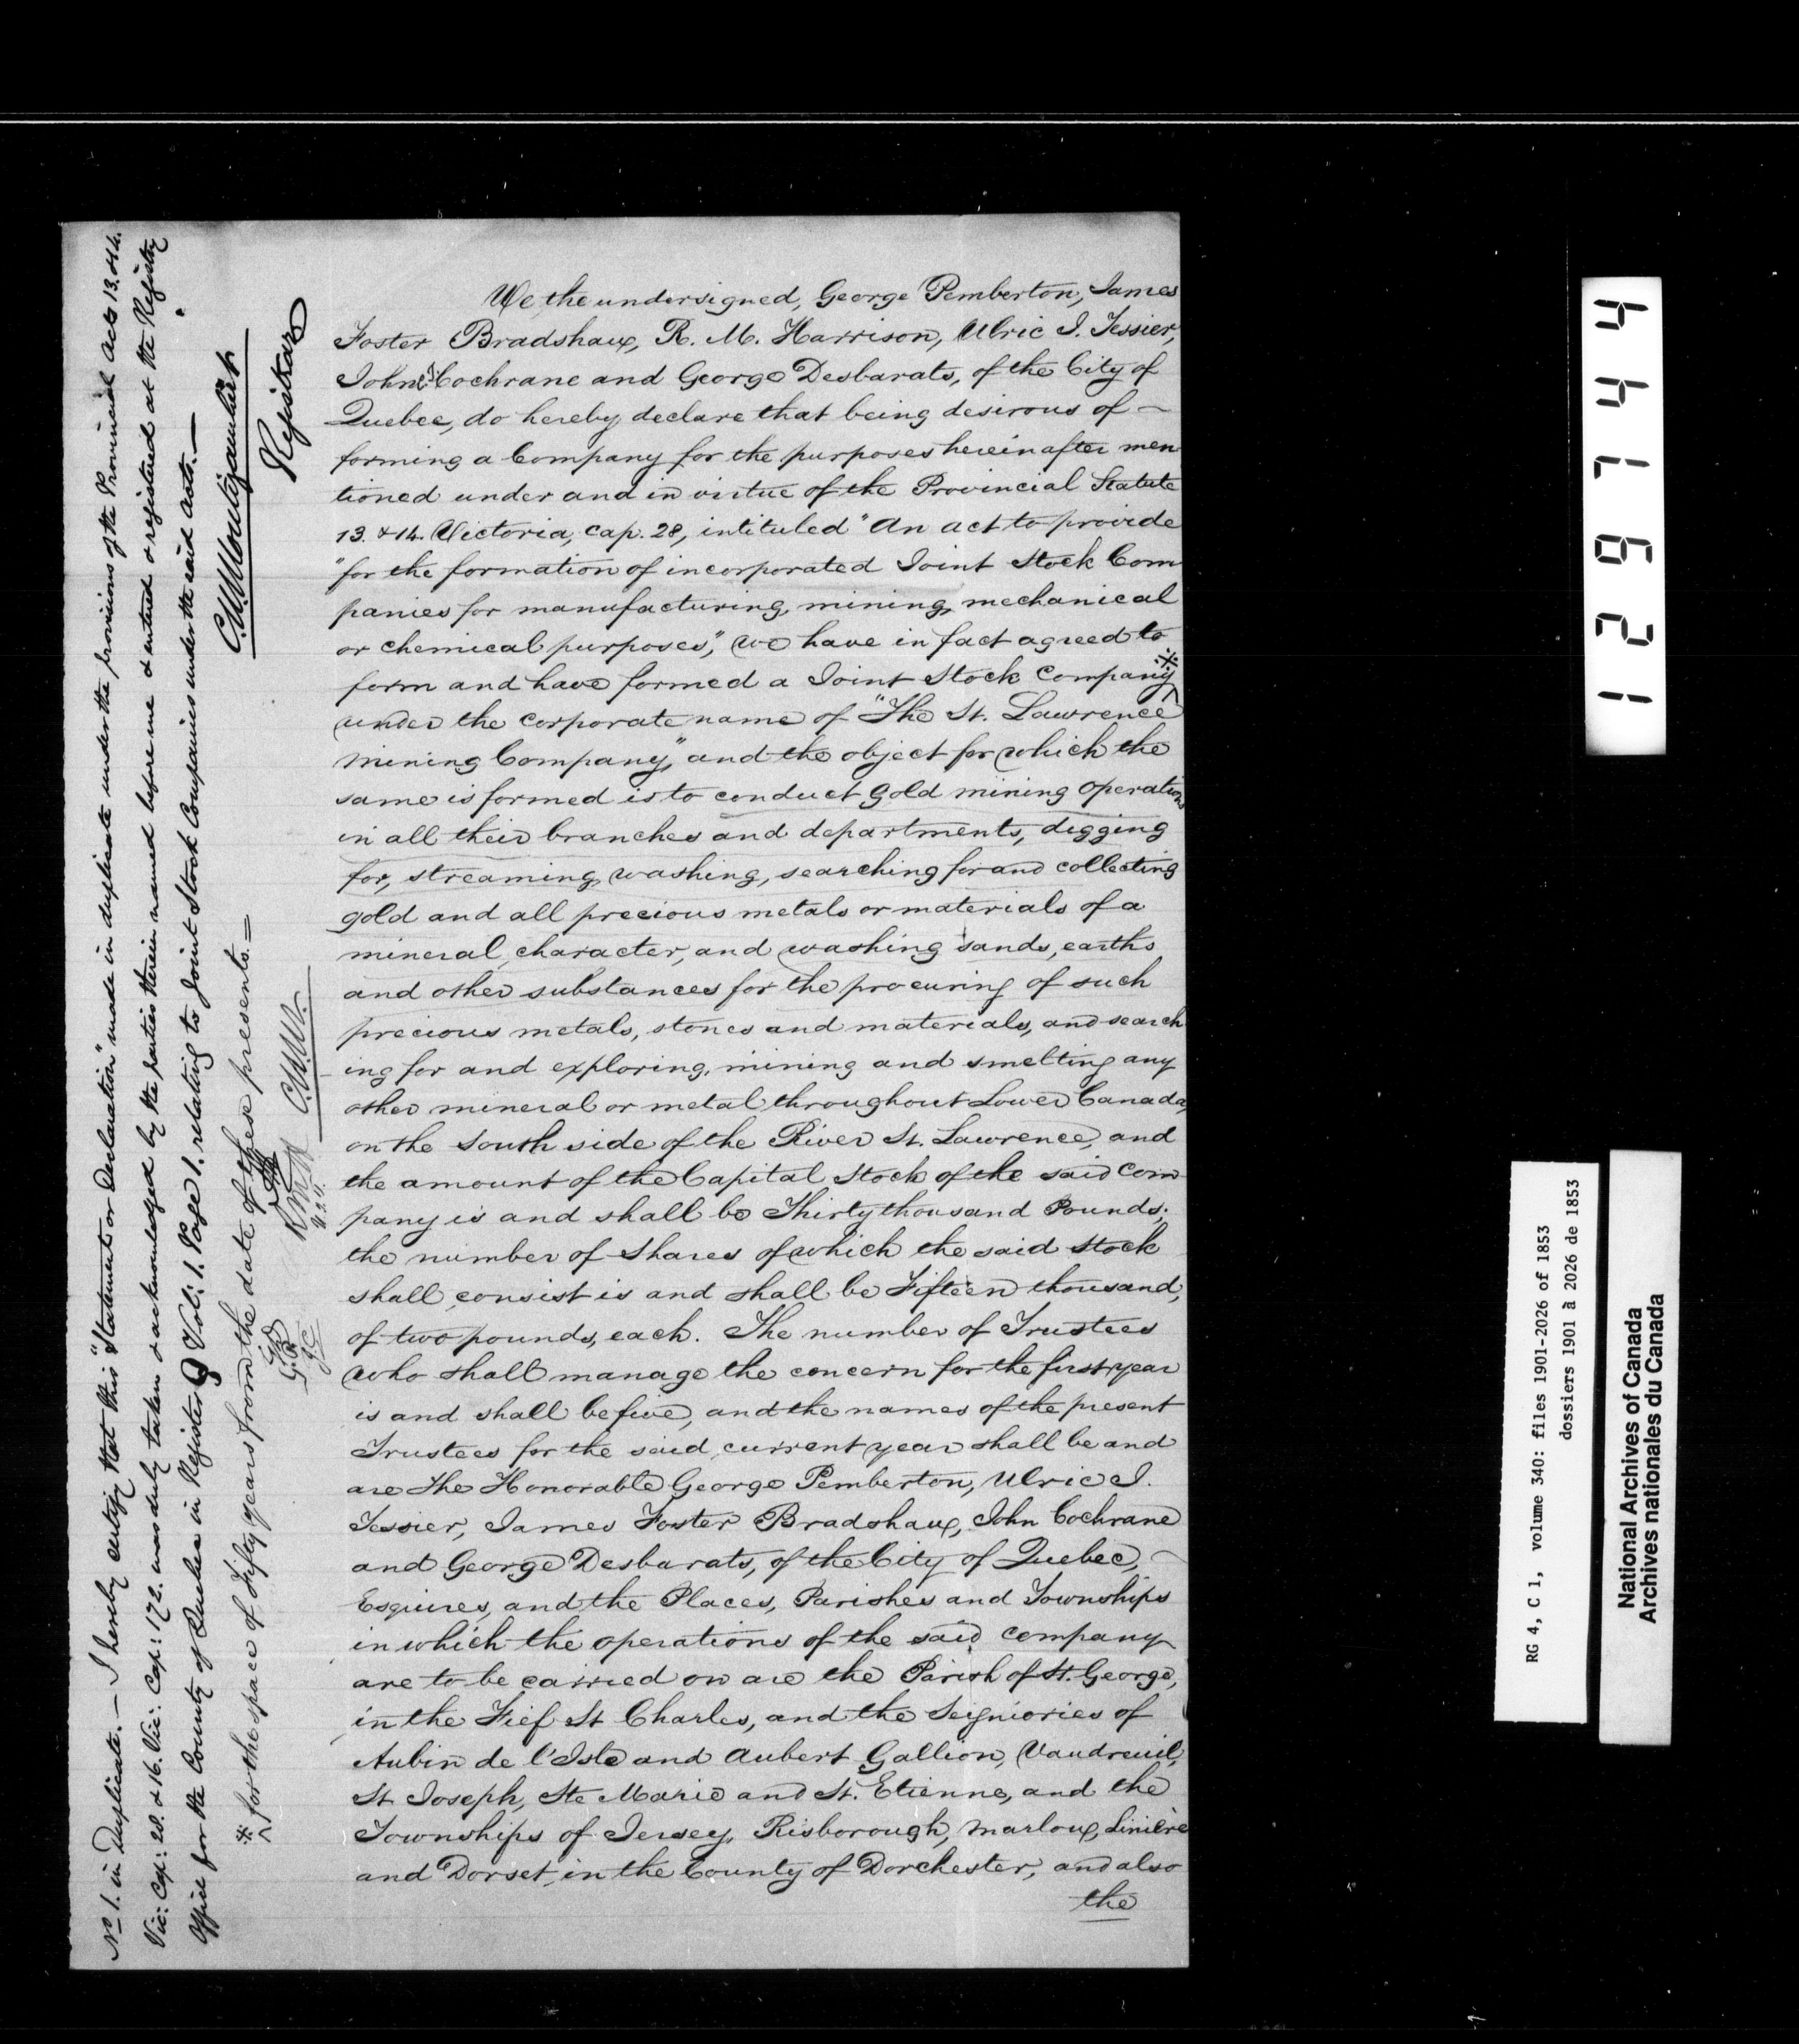 We the undersigned, George Pemberton, James
Foster Bradshaw, R. M. Harrison, Ulric J. Tessier,
John Cochrane and George Desbarats, of the City of
Quebec, do hereby declare that being desirous of —
forming a Company for the purposes herein after men
tioned under and in virtue of the Provincial Statute
13. & 14. Victoria, cap. 28, intituled "An act to provide
"for the formation of incorporated Joint Stock Com
panies for manufacturing, mining, mechanical
or chemical purposes," we have in fact agreed to
form and have formed a Joint Stock Company ※
under the corporate name of "The St. Lawrence
Mining Company," and the object for which the
same is formed is to conduct Gold mining operations
in all their branches and departments, digging
for, streaming, washing, searching for and collecting
gold and all precious metals or materials of a
mineral character, and washing sands, earths
and other substances for the procuring of such
precious metals, stones and materials, and search
ing for and exploring, mining and smelting any
other mineral or metal throughout Lower Canada,
on the South side of the River St. Lawrence, and
the amount of the Capital Stock of the said Com
pany is and shall be Thirty thousand Pounds;
the number of Shares of which the said Stock
shall consist is and shall be Fifteen thousand,
of two pounds, each. The number of Trustees
who shall manage the concern for the first year
is and shall be five, and the names of the present
Trustees for the said current year shall be and
are The Honorable George Pemberton, Ulric J.
Tessier, James Foster Bradshaw, John Cochrane
and George Desbarats, of the City of Quebec, —
Esquires, and the Places, Parishes and Townships
in which the operations of the said company
are to be carried on are the Parish of St. George,
in the Fief St Charles, and the Seigniories of
Aubin de l'Isle and Aubert Gallion, Vaudreuil,
St Joseph, Ste Marie and St. Etienne, and the
Townships of Jersey, Risborough, Marlow, Linière
and Dorset, in the County of Dorchester, and also
the
No 1. in Duplicate. — I hereby certify that this "Statement or Declaration" made in duplicate under the provisions of the Provincial Acts 13. & 14.
Vic: Cap: 28. & 16. Vic: Cap: 172. was duly taken & acknowledged by the parties therein named before me & entered & registered at the Registry
Office for the County of Quebec in Register G Vol: 1. Page 1. relating to Joint Stock Companies under the said Acts. —
C. N. Montizambert
Registrar
※ for the space of Fifty years from the date of these presents. =
C.N.M.
R.M.H
U.J.T.
G.D.
J.C
129744
RG 4, C 1, volume 340: files 1901-2026 of 1853
dossiers 1901 à 2026 de 1853
National Archives of Canada
Archives nationales du Canada